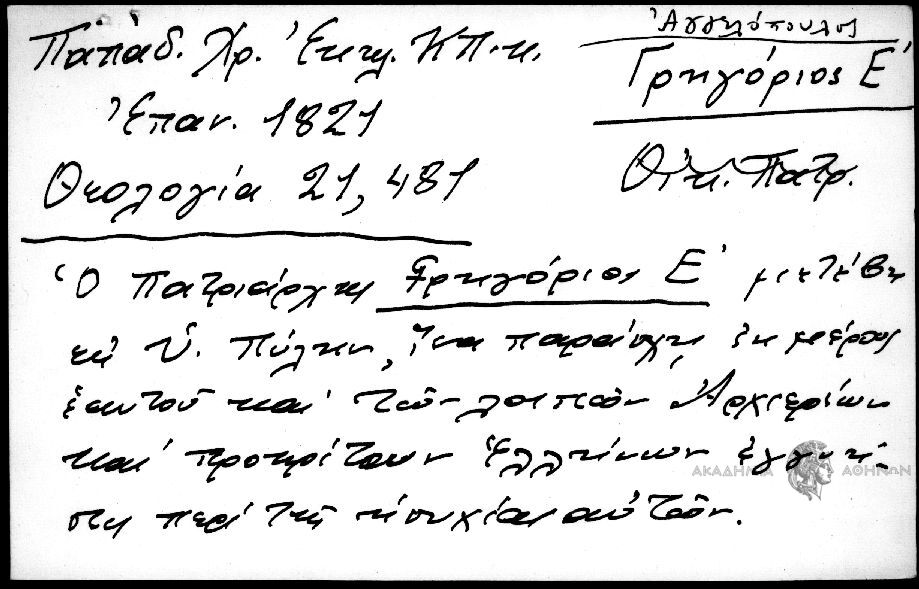 Ἀγγελόπουλος
Παπαδ. Χρ. Ἐκκλ. ΚΠ-κ. Γρηγόριος Ε'
Ἐπαν. 1821
Θεολογία 21, 481 Οἰκ. Πατρ.
Ὁ Πατριάρχης Γρηγόριος Ε' μετέβη
εἰς Ὑ. Πύλην, ἵνα παράσχῃ ἐκ μέρους
ἑαυτοῦ καὶ τῶν λοιπῶν Ἀρχιερέων
καὶ προκρίτων Ἑλλήνων ἐγγυή-
σεις περὶ τῆς ἡσυχίας αὐτῶν.
ΑΚΑΔΗΜΙΑ ΑΘΗΝΩΝ